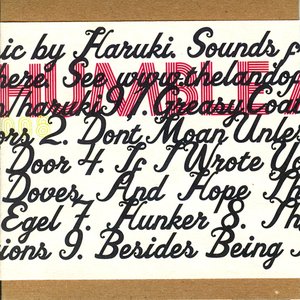 ic by Haruki. Sounds f
here. See www.thelandof
HUMBLE
/haruki 9/1. Greasy Coat
ors 2. Dont Moan Unle
Door 4. If I Wrote Yo
Doves, And Hope Th
Egel 7. Hunker 8. Th
ions 9. Besides Being